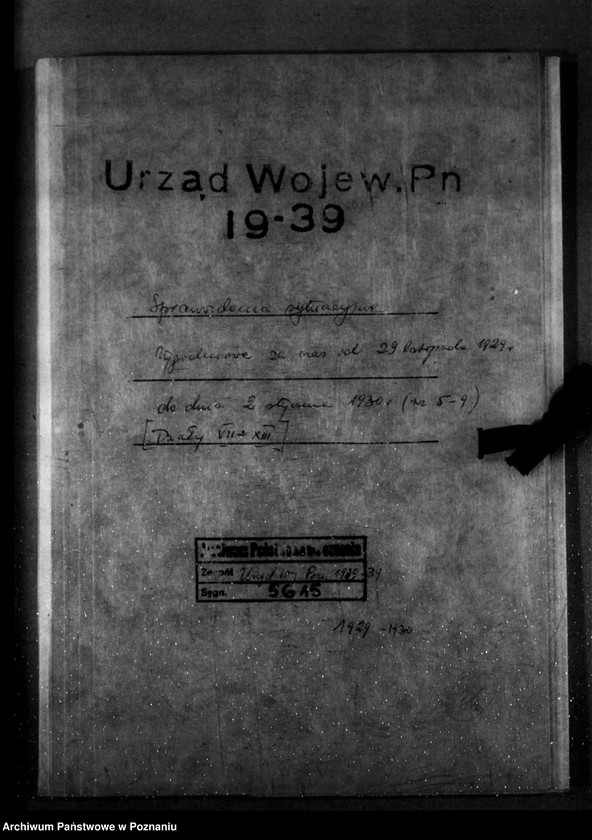 Urząd Wojew. Pn
19-39
Sprawozdania sytuacyjne
Tygodniowe za czas od 29 listopada 1929 r
do dnia 2 stycznia 1930 r (nr 5-9)
[Działy VII-XIII]
Archiwum Państwowe w Poznaniu
Zespół Urząd Woj. Poz. 1919-39
Sygn. 5645
1929-1930
Archiwum Państwowe w Poznaniu